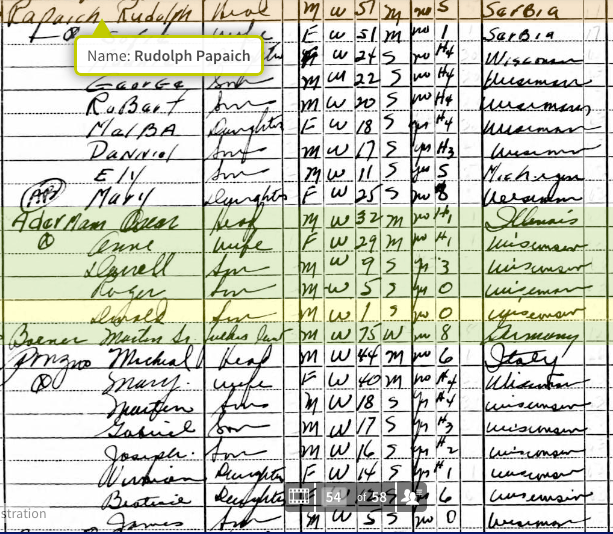 Papaich Rudolph Head M W 51 M no 5 Sarbia
wife F W 51 M no 1 Sarbia
Name: Rudolph Papaich
W 24 S no H4 Wisconsin
George Son M W 22 S no H4 Wisconsin
RoBart Son M W 20 S no H4 Wisconsin
MalBA Daughter F W 18 S yes H4 Wisconsin
Danniel Son M W 17 S yes H3 Wisconsin
Ely Son M W 11 S yes 5 Michigan
Mary Daughter F W 25 S no 8 Wisconsin
Aderman Oscar Head M W 32 M no H1 Illenois
Anne wife F W 29 M no H1 wisconsin
Darrell Son M W 9 S yes 3 wisconsin
Roger Son M W 5 S yes 0 wisconsin
Son M W 1 S no 0 wisconsin
Boener Martin Sr. M W 75 W no 8 Germany
Micheal Head M W 44 M no 6 Italy
Mary wife F W 40 M no H4 Wisconsin
Martin Son M W 18 S yes H4 wisconsin
Gabriel Son M W 17 S yes H3 wisconsin
Joseph Son M W 16 S yes H2 wisconsin
Daughter F W 14 S yes H1 wisconsin
Daughter 6 wisconsin
54 of 58
James Son M W 5 S no 0 Wisconsin
stration